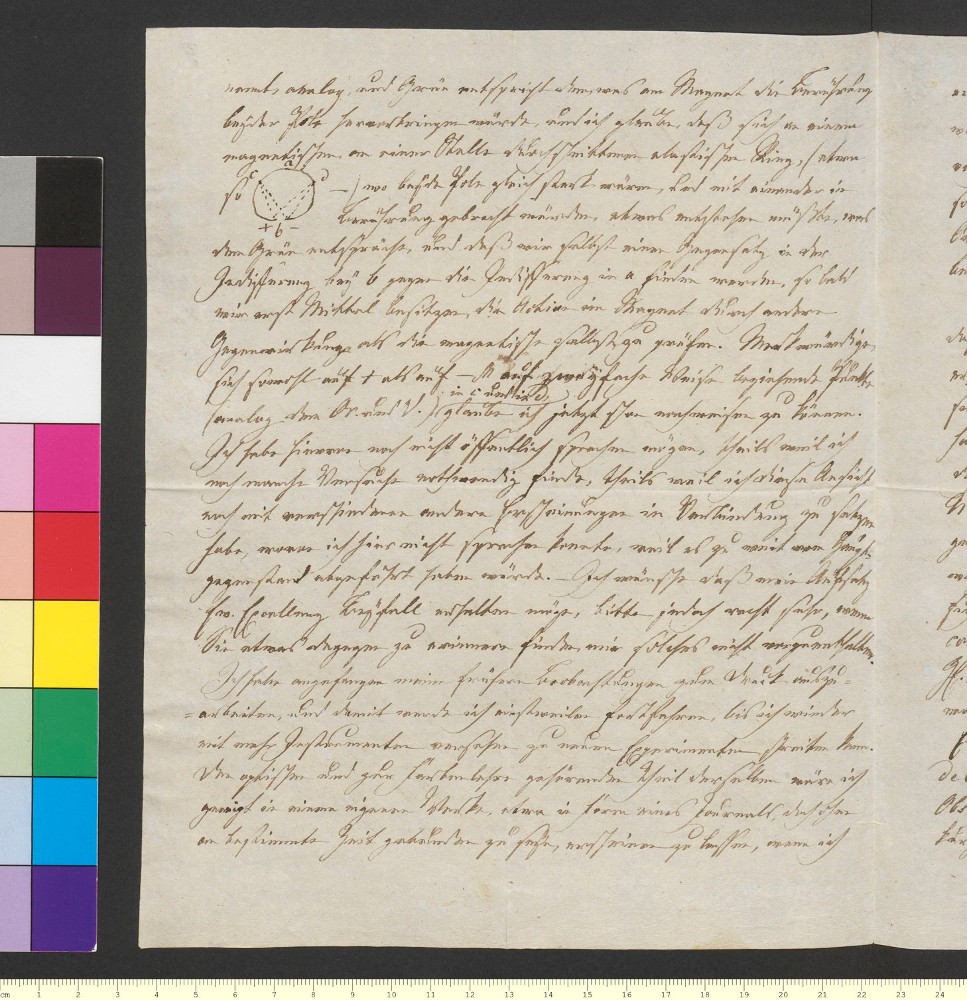 nannte analog, und Grün entspricht dem, was am Magnet die Berührung
beyder Pole hervorbringen würde, und ich glaube, daß sich an einem
magnetischen, an einer Stelle durchschnittenen elastischen Ring, (etwa
so a c d + b - -) wo beyde Pole gleich stark wären, und mit einander in
Berührung gebracht würden, etwas entstehen müßte, was
dem Grün entspräche, und daß wir selbst einen Gegensatz in der
Indifferenz bey b gegen die Indifferenz in a finden werden, so bald
wir erst Mittel besitzen, die Action im Magnet durch andere
Gegenwirkung als die magnetische selbst zu prüfen. Merkwürdige,
sich sowohl auf + als auf - M auf zweyfache Weise beziehende Punkte
in c und in d,
(analog dem Or. und V.) glaube ich jetzt schon nachweisen zu können.
Ich habe hiervon noch nicht öffentlich sprechen mögen, theils weil ich
noch manche Versuche nothwendig finde, theils weil ich diese Ansicht
noch mit verschiedenen andern Erscheinungen in Verbindung zu setzen
habe, wovon ich hier nicht sprechen konnte, weil es zu weit vom Haupt-
gegenstand abgeführt haben würde. – Ich wünsche daß mein Aufsatz
Ew. Excellenz Beyfall erhalten möge, bitte jedoch recht sehr, wenn
Sie etwas dagegen zu erinnern finden, mir solches nicht vorzuenthalten.
Ich habe angefangen meine frühern Beobachtungen zum Druck auszu-
=arbeiten, und damit werde ich einstweilen fortfahren, bis ich wieder
mit mehr Instrumenten versehen zu neuen Experimenten schreiten kan.
Den optischen und zur Farbenlehre gehörenden Theil derselben wäre ich
geneigt in einem eigenen Werke, etwa in Form eines Journals, doch ohne
an bestimmte Zeit gebunden zu seyn, erscheinen zu lassen, wenn ich